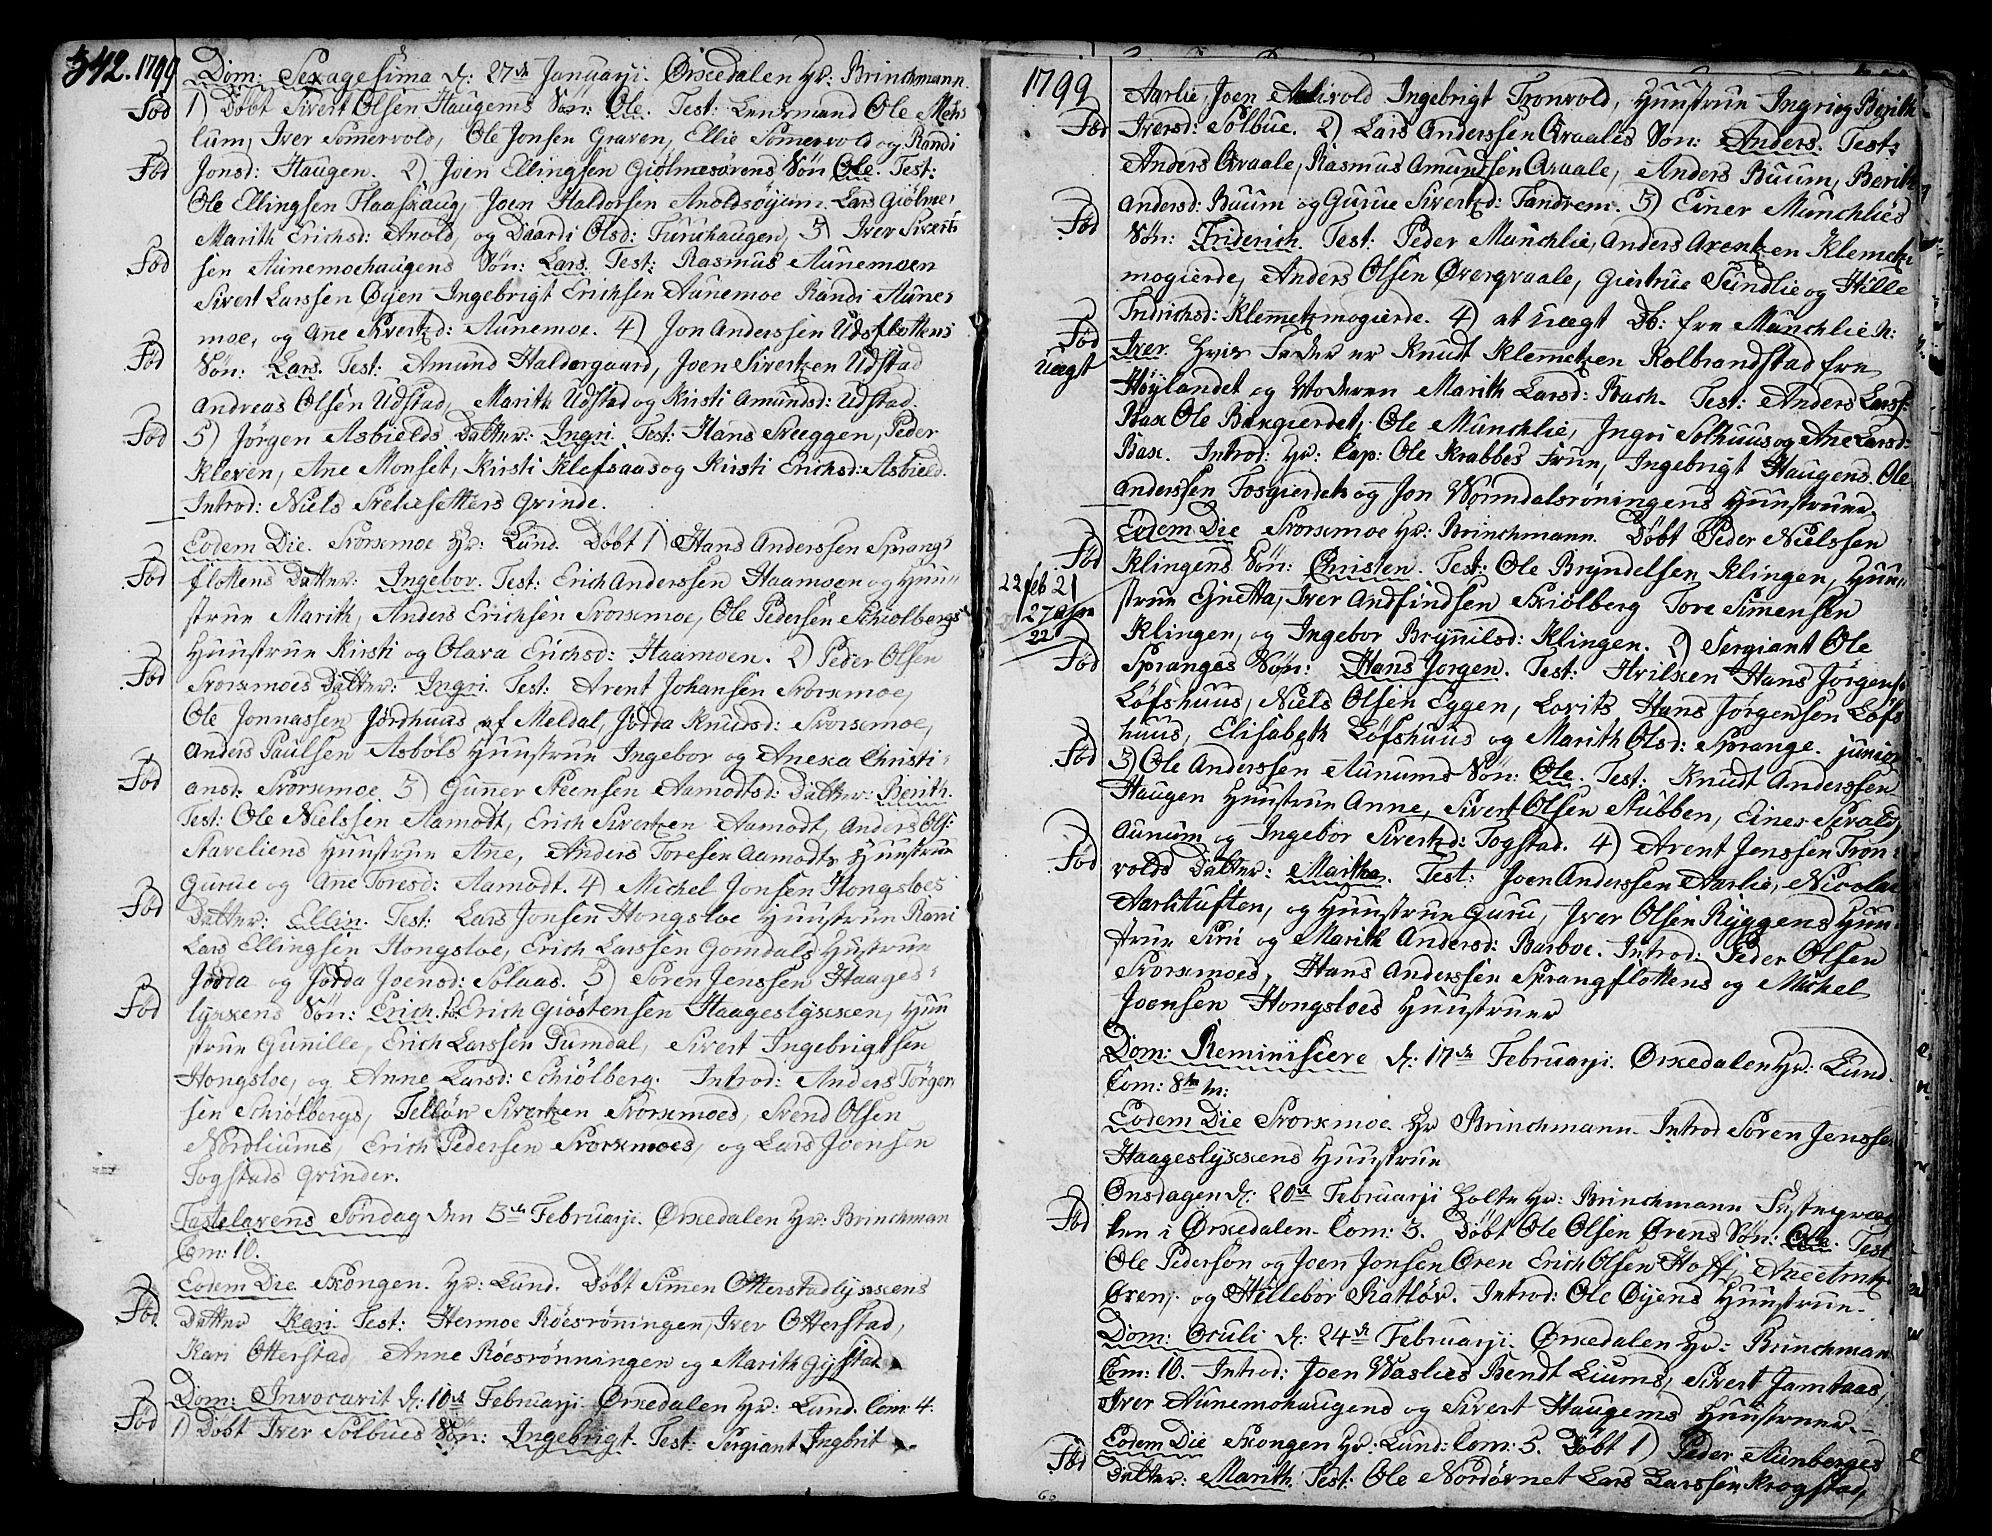 342. 1799 Dom: Sexagesima d: 27de Januarji. Ørkedalen Hr: Brinchmann.
Fød 1) Døbt Sivert Olsen Haugems Søn: Ole. Test: Lensmand Ole Meh-
lum, Iver Somervold, Ole Jonsen Graven, Ellie Somervold og Randi
Fød Jonsd: Haugen. 2) Joen Ellingsen Giølmesørens Søn Ole. Test:
Ole Ellingsen Flaaskaug, Joen Haldorsen Anoldsøyem Lars Giølme,
Marith Erichsd: Anold, og Daardi Olsd: Furuhaugen, 3) Iver Siverts
Fød sen Aunemoehaugens Søn: Lars. Test: Rasmus Aunemoen
Sivert Larssen Øyen Ingebrigt Erichsen Aunemoe Randi Aune-
moe, og Ane Sivertzd: Aunemoe. 4) Jon Anderssen Udsflottens
Fød Søn: Lars. Test: Amund Haldorgaard, Joen Sivertzen Udstad
Andreas Olsen Udstad, Marith Udstad og Kirsti Amundsd: Udstad.
Fød 5) Jørgen Asbields Datter: Ingri. Test: Hans Skeggen, Peder
Kleven, Ane Monset, Kirsti Klefsaas og Kirsti Erichsd: Asbield.
Introd: Niels Grinde.
Eodem Die. Svorkmoe Hr: Lund. Døbt 1) Hans Anderssen Sprang-
Fød flottens Datter: Ingebor. Test: Erich Anderssen Haamoen og Huu-
strue Marith, Anders Erichsen Svorkmoe, Ole Pedersen Schiølbergs
Huustrue Kirsti og Olava Erichsd: Haamoen. 2) Peder Olsen
Fød Svorkmoes Datter: Ingri. Test: Arent Johansen Svorkmoe,
Ole Jonnassen Jordhuus af Meldal, Jødta Knudsd: Svorkmoe,
Anders Paulsen Asbøls Huustrue Ingebor og Anexa Christi-
Fød ansd: Svorkmoe 3) Gunner Steensen Aamodts: Datter: Berith.
Test: Ole Nielssen Aamodt, Erich Sivertzen Aamodt, Anders Ols:
Staveliens Huustrue Ane, Anders Toresen Aamodts Huustrue
Gurue og Ane Toresd: Aamodt. 4) Michel Jonsen Hongsloes
Fød Datter: Ellin. Test: Lars Jonsen Hongsloe Huustrue Ranni
Lars Ellingsen Hongsloe, Erich Larssen Gomdals Hustrue
Jødta og Jødta Joensd: Solaas. 5) Soren Jenssen Haages-
Fød lykkens Søn: Erich. Erich Giøstensen Haageslykken, Huu
strue Gunille, Erich Larssen Gumdal, Sivert Ingebrigtsen
Hongsloe, og Anne Larsd: Schiølberg. Introd: Anders Jørgen
sen Schiølbergs, Telløv Sivertzen Svorkmoes, Svend Olsen
Nordliums, Erich Pedersen Svorkmoes, og Lars Joensen
Togstads Qvinder.
Fastelavens Søndag den 3de Februarji. Ørkedalen Hr: Brinchman
Com: 10.
Eodem Die. Skongen. Hr: Lund. Døbt Simen Otterstadlykkens
Fød Datter Kari. Test: Hermoe Røesrøningen, Iver Otterstad,
Kari Otterstad, Anne Røesrønningen og Marith Gystad
Dom: Invocavit d: 10de Februarji Ørkedalen Hr: Lund. Com: 4.
Fød 1) Døbt Iver Solbues Søn: Ingebrigt. Test: Sergiant Ingbrit
1799 Aarlie, Joen Ingebrigt Tronvold, Huustrue Ingri og Berith
Fød Iversd: Solbue. 2) Lars Anderssen Qvaales Søn: Anders. Test:
Anders Qvaale, Rasmus Amundsen Qvaale, Anders Buum, Berith
Andersd: Buum og Gurue Sivertzd: Fandrem. 3) Einer Munchlies
Fød Søn: Friderich. Test: Peder Munchlie, Anders Arentzen Klemetz
mogierde, Anders Olsen Øverqvaale, Giertrue Sundlie og Hille
Indrichsd: Klemetzmogierde. 4) et uægt Db: fra Munchlie N:
Fød uægt Iver. Hvis Fader er Knudt Klemetzen Kolbrandstad fra
Høylandet og Moderen Marith Larsd: Bach. Test: Anders Larss:
Bax Ole Baxgierdet, Ole Munchlie, Ingri Solhuus og Ane Larsd:
Bax. Introd: Hr: Cap: Ole Krabbes Frue, Ingebrigt Haugens Ole
Anderssen Fosgierdets og Jon Wormdalsrøningens Huustruer.
Eodem Die Svorkmoe Hr: Brinchmann. Døbt Peder Nielssen
Fød Klingens Søn: Christen. Test: Ole Bryndelsen Klingen, Huu-
22 feb 21
strue Gietta, Iver Andfindsen Skiølberg Tore Simensen
27
22
Klingen, og Ingebor Brynnilsd: Klingen. 2) Sergiant Ole
Fød Spranges Søn: Hans Jorgen. Test: Hans Jørgens:
Løfshuus, Niels Olsen Eggen, Lovits Hans Jørgensen Løfs
huus, Elisabeth Løfshuus og Marith Olsd: Sprange. junior
Fød 3) Ole Anderssen Aunums Søn: Ole. Test: Knudt Anderssen
Haugen Huustrue Anne, Sivert Olsen Stubben, Einer
Aunum og Ingebor Sivertzd: Togstad. 4) Arent Jenssen Tron-
Fød volds Datter: Martha. Test: Joen Anderssen Aarlie, Nicolai
Aarlituften, og Huustrue Guru, Iver Olsen Ryggens Huu-
strue Siri og Marith Andersd: Barboe. Introd: Peder Olsen
Svorkmoes, Hans Anderssen Sprangflottens og Michel
Joensen Hongsloes Huustruer
Dom: Reminiscere d: 17de Februarji. Ørkedalen Hr: Lund.
Com: 8
Eodem Die Svorkmoe Hr Brinchmann. Introd Soren Jensse
Haageslykkens Huustrue
Onsdagen d: 20de Februarji holte Hr: Brinchmann Fasteprædi
Fød ken i Ørkedalen. Com: 3. Døbt Ole Olsen Ørens Søn: Ole. Test
Ole Pedersøn og Joen Jonsen Øren Erich Olsen Hoff,
Øren, og Hillebor Ratløv. Introd: Ole Øyens Huustrue.
Dom: Oculi d: 24de Februarji. Ørkedalen Hr: Brinchman
Com: 10. Introd: Joen Waslies Bendt Liums, Sivert Jamtaas,
Iver Aunemohaugens og Sivert Haugems Huustruer.
Eodem Die Skongen Hr: Lund: Com: 5. Døbt 1) Peder Aunberges
Fød Datter: Marith. Test: Ole Nordørnet Lars Larssen Krogstad,